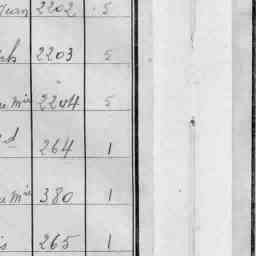 Jean 2202 5
2203 5
Mie 2204 5
264 1
Mie 380 1
265 1